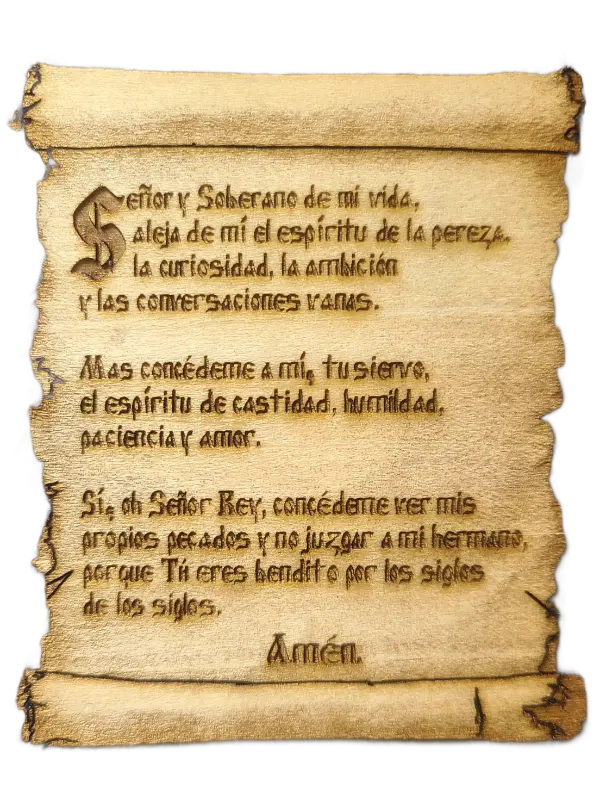 Señor y Soberano de mi vida,
aleja de mí el espíritu de la pereza,
la curiosidad, la ambición
y las conversaciones vanas.
Mas concédeme a mí, tu siervo,
el espíritu de castidad, humildad,
paciencia y amor.
Sí, oh Señor Rey, concédeme ver mis
propios pecados y no juzgar a mi hermano,
porque Tú eres bendito por los siglos
de los siglos.
Amén.